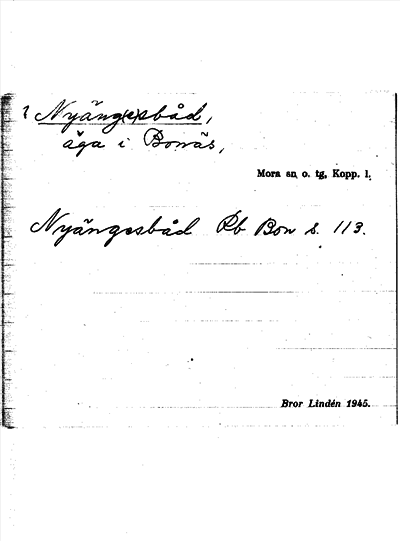 ? Nyäng(e)sbåd,
äga i Bonäs,
Mora sn. o. tg, Kopp. l.
Nyängesbåd Rb Bon s. 113.
Bror Lindén 1945.